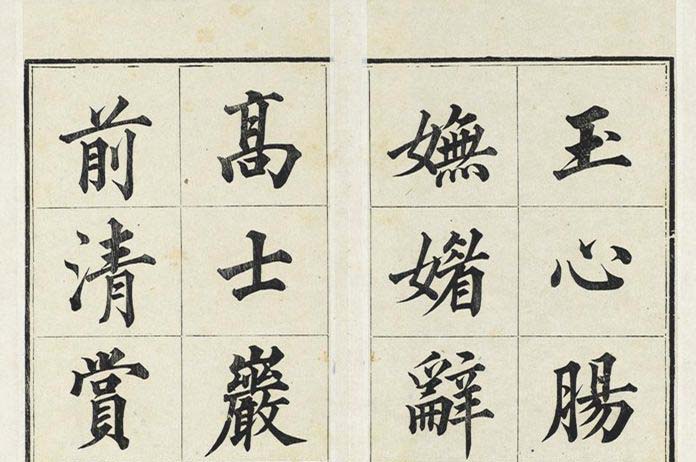 玉心腸
嫵媚辭
髙士巖
前清賞